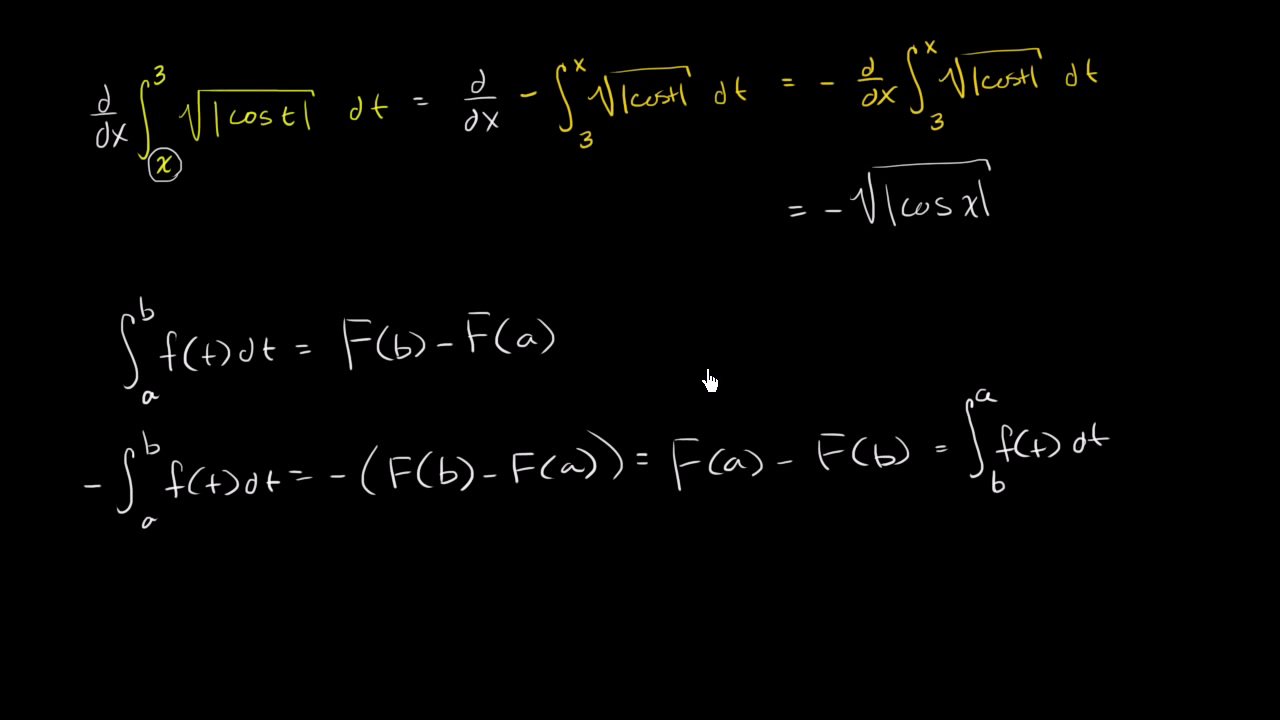 d/dx ∫ₓ³ √|cos t| dt = d/dx - ∫₃ˣ √|cost| dt = - d/dx ∫₃ˣ √|cost| dt
= - √|cos x|
∫ₐᵇ f(t)dt = F(b) - F(a)
- ∫ₐᵇ f(t)dt = - (F(b) - F(a)) = F(a) - F(b) = ∫_b^a f(t) dt